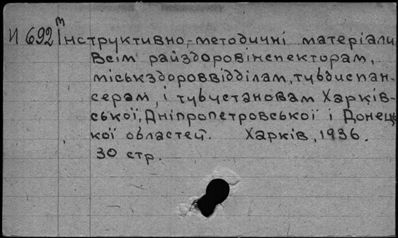 И 692 m Інструктивно-методичні матеріали
Всім райздоровінспекторам,
міськздороввідділам, тубдиспан-
серам, і тубустановам Харків-
ської, Дніпропетровської і Донец-
кої областей. Харків, 1936.
30 стр.